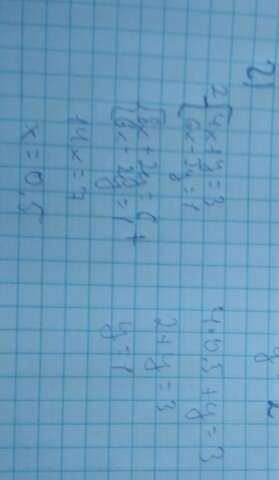 2)
2| { 4x + y = 3
{ 6x - 2y = 1
{ 8x + 2y = 6 +
{ 6x - 2y = 1
14x = 7
x = 0,5
4·0,5 + y = 3
2 + y = 3
y = 1